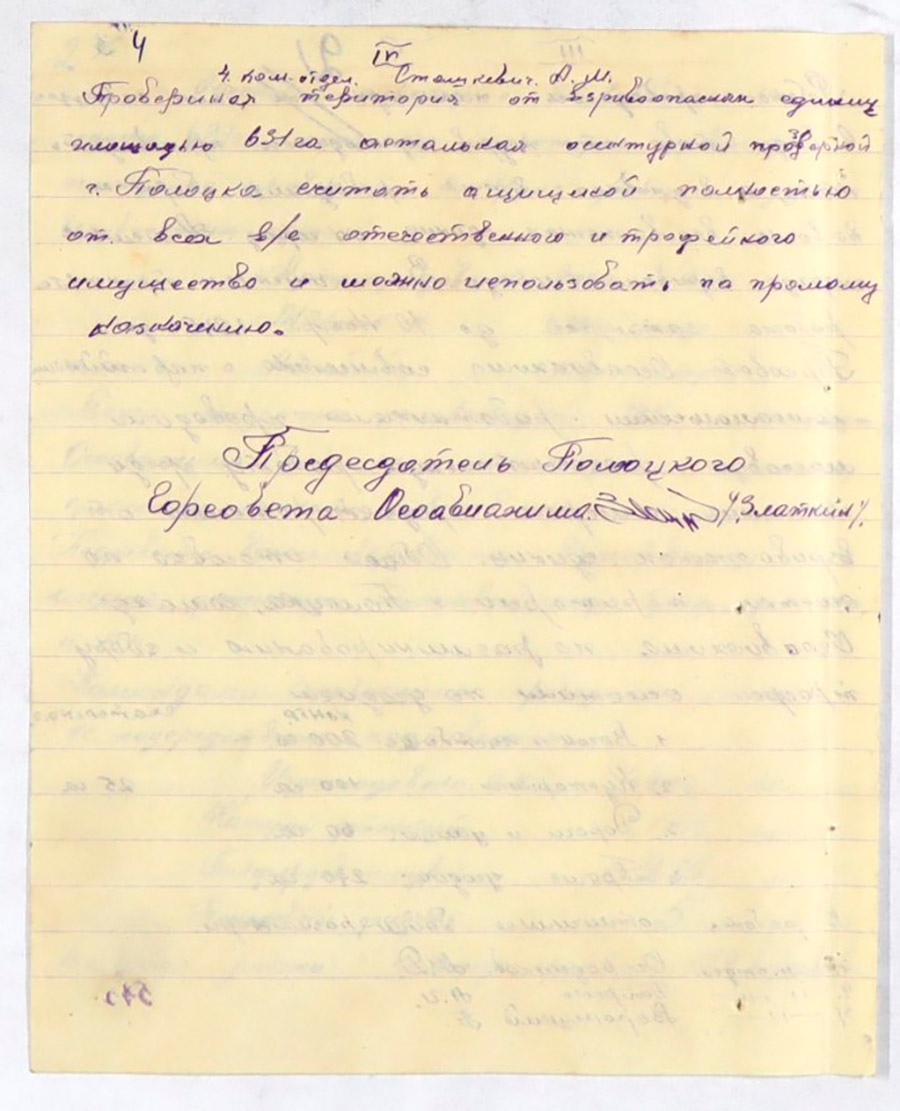 4
IV
4. ком. отдел. Сташкевич. А. М.
Провериная територия от взривоопасних единиц
площадью 631 га остальная
г. Полоцка считать ащищиной полностью
от всех в/в отечественного и трофейного
имущество и можно использовать по прямому
назначению.
Председатель Полоцкого
Горсовета Осоавиахима. /Златкин/.